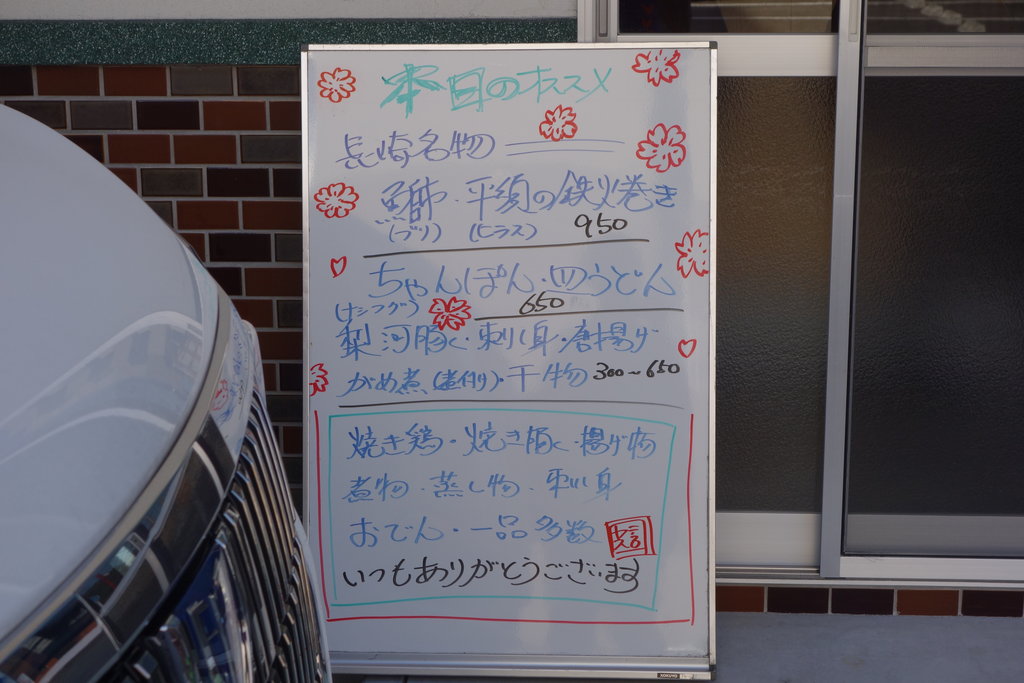 本日のオススメ
長崎名物
鰤・平須の鉄火巻き
(ブリ) (ヒラス) 950
ちゃんぽん・皿うどん
(ナシフグ) 650
梨河豚・刺し身・唐揚げ
がめ煮(煮付け)・干物 300～650
焼き鶏・焼き豚・揚げ物
煮物・蒸し物・刺し身
おでん・一品多数
いつもありがとうございます